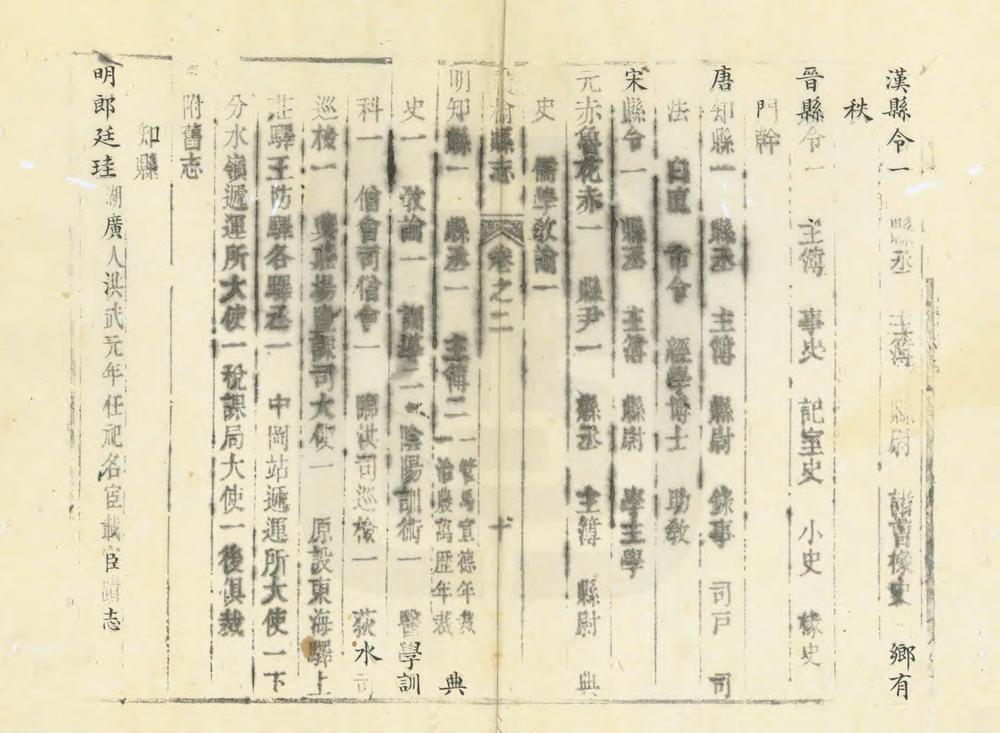 漢縣令一 縣丞 主簿 縣尉 諸曹掾史 鄉有
秩
晉縣令一 主簿 事史 記室史 小史 掾史
門幹
唐知縣一 縣丞 主簿 縣尉 錄事 司戶 司
法 白直 市令 經學博士 助教
宋縣令一 縣丞 主簿 縣尉 學主學
元赤魯花赤一 縣尹一 縣丞 主簿 縣尉 典
史 儒學敎諭一
榆縣志 卷之二 十
明知縣一 縣丞一 主簿二 一管馬宣德年裁 一治農萬歷年裁 典
史一 敎諭一 訓導二 陰陽訓術一 醫學訓
科一 僧會司僧會一 臨洪司巡檢一 荻水司
巡檢一 興莊場鹽課司大使一 原設東海驛上
莊驛王坊驛各驛丞一 中岡站遞運所大使一下
分水嶺遞運所大使一稅課局大使一後俱裁
附舊志
知縣
明郎廷珪 湖廣人洪武元年任祀名宦載宦蹟志